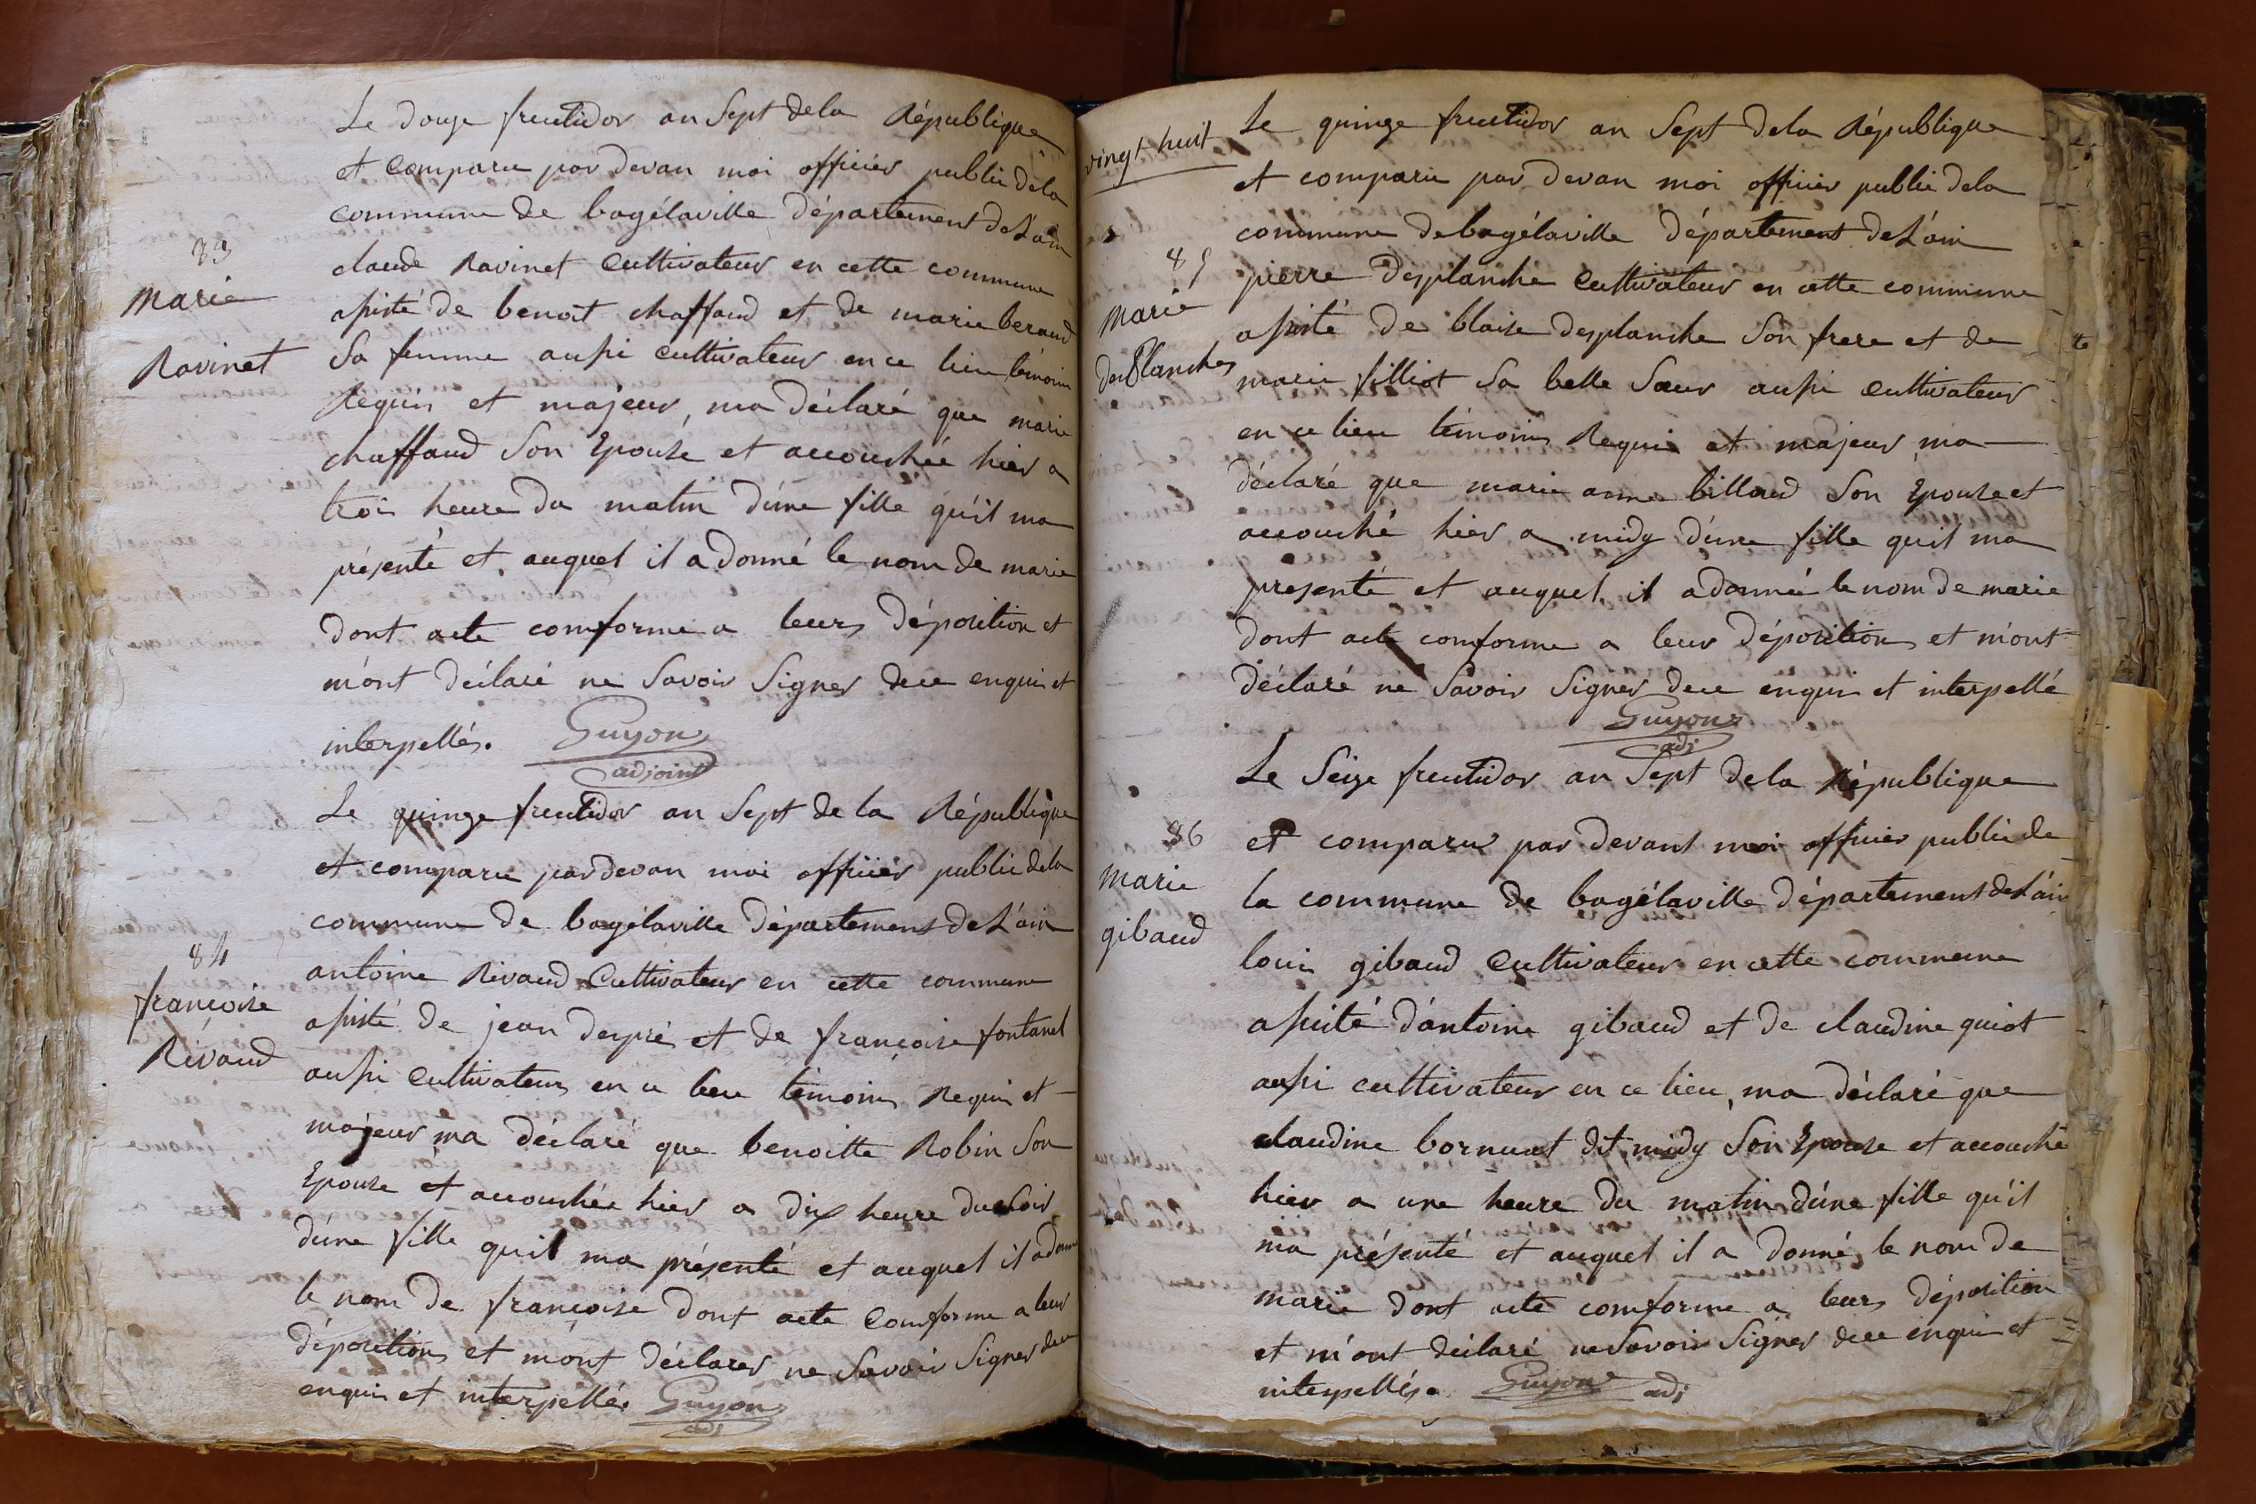 83
Marie
Ravinet
Le douze fructidor an Sept dela République
et comparu par devan moi officier public dela
commune de bagélaville département de L'ain
claude Ravinet Cultivateur en cette commune
assisté de benoit chaffaud et de marie beraud
Sa femme aussi cultivateur en ce lieu témoins
Requis et majeur, ma déclaré que marie
chaffaud Son Epouse et accouchée hier a
trois heure du matin d'une fille qu'il ma
présenté et auquel il a donné le nom de marie
dont acte comforme a leurs déposition et
m'ont déclaré ne Savoir Signer de ce enquis et
interpellés. Guyon
adjoint
84
françoise
Rivaud
Le quinze fructidor an Sept de la République
et comparu par devan moi officier public dela
commune de bagélaville département de L'ain
antoine Rivaud Cultivateur en cette commune
assisté de jean despré et de françoise fontanel
aussi Cultivateurs en ce lieu témoins Requis et
majeur ma déclaré que benoitte Robin Son
Epouse et accouchée hier a dix heure du Soir
d'une fille quil ma présenté et auquel il a donné
le nom de françoise dont acte Comforme a leur
dépositions et m'ont déclarer ne Savoir Signer de ce
enquis et interpellé. Guyon
adj
vingt huit
85
Marie
desPlanches
Le quinze fructidor an Sept dela République
et comparu par devan moi officier public dela
commune de bagélaville département de L'ain
pierre desplanche Cultivateur en cette commune
assisté de blaise desplanche Son frere et de
marie filliot Sa belle Sœur aussi cultivateur
en ce lieu témoins Requis et majeur ma
déclaré que marie anne billoud Son Epouse et
accouché hier a midy d'une fille quil ma
presenté et auquel il a donné le nom de marie
dont acte comforme a leur dépositions et m'ont
déclaré ne Savoir Signer de ce enquis et interpellé
Guyon
adj
86
Marie
gibaud
Le Seize fructidor an Sept dela République
et comparu par devant moi officier public de
la commune de bagélaville département de L'ain
louis gibaud Cultivateur en cette commune
assisté d'antoine gibaud et de claudine guiot
aussi cultivateur en ce lieu, ma déclaré que
claudine dit midy Son Epouse et accouché
hier a une heure du matin d'une fille qu'il
ma présenté et auquel il a donné le nom de
marie dont acte comforme a leurs déposition
et m'ont déclaré ne Savoir Signer de ce enquis et
interpellés. Guyon adj